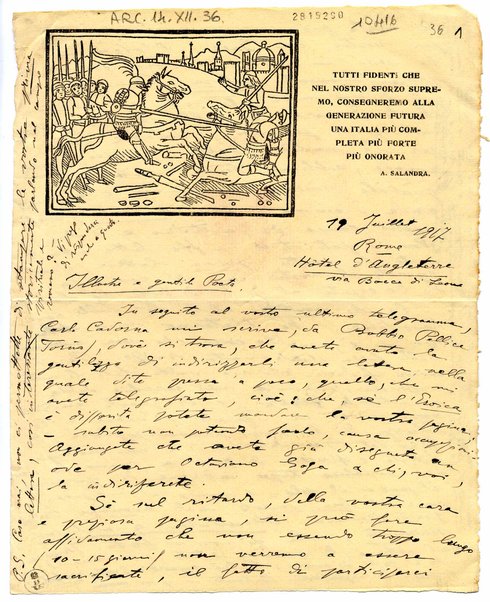 ARC. 14. XII. 36.
2819290
10416
36 1
TUTTI FIDENTI CHE
NEL NOSTRO SFORZO SUPRE-
MO, CONSEGNEREMO ALLA
GENERAZIONE FUTURA
UNA ITALIA PIÙ COM-
PLETA PIÙ FORTE
PIÙ ONORATA
A. SALANDRA.
19 Juillet 1917
Rome
Hôtel d'Angleterre
via Bocca di Leone
Illustre e gentile Poeta,
In seguito al vostro ultimo telegramma,
Carlo Cadorna mi scrive, da Bobbio Pellice
Torino, dove si trova, che avete avuto la
gentilezza di indirizzarli una lettera, nella
quale dite presso a poco, quello, che mi
avete telegrafato, cioè: che, se l'Eroica
è disposta potete mandare la vostra pagina,
subito non potento farlo, causa occupazioni.
Aggiungete che avete già disegnato un
ode per Octavian Goga a chi, voi,
la indirizzerete.
Se sul ritardo, della vostra cara
e preziosa pagina, si può fare
affidamento che non essendo troppo lungo
(10-15 giorni) non verremo a essere
sacrificati, il fatto di parteciparci
P.S. Caso mai, voi ci permettete di stampare la vostra